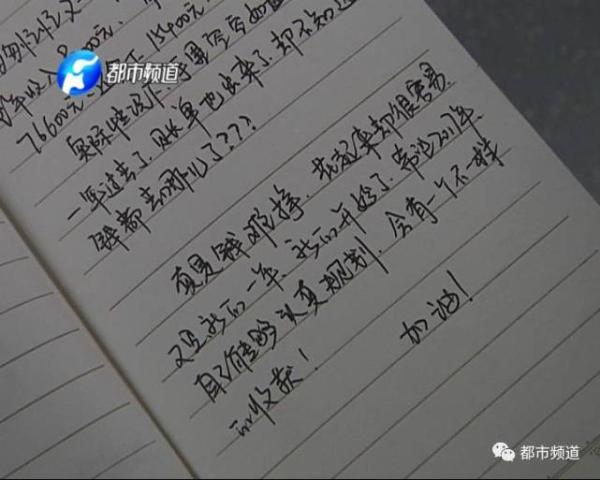 年收入8000元
76600元 15400元
都市频道
实际情况
一年过去了，账单也出来了，却不知道
钱都去哪儿了???
真是钱难挣，花起来却很容易
又是新的一年，新的开始了，希望2017年
自己能够认真规划，会有一个不一样
的收获！ 加油！
都市频道